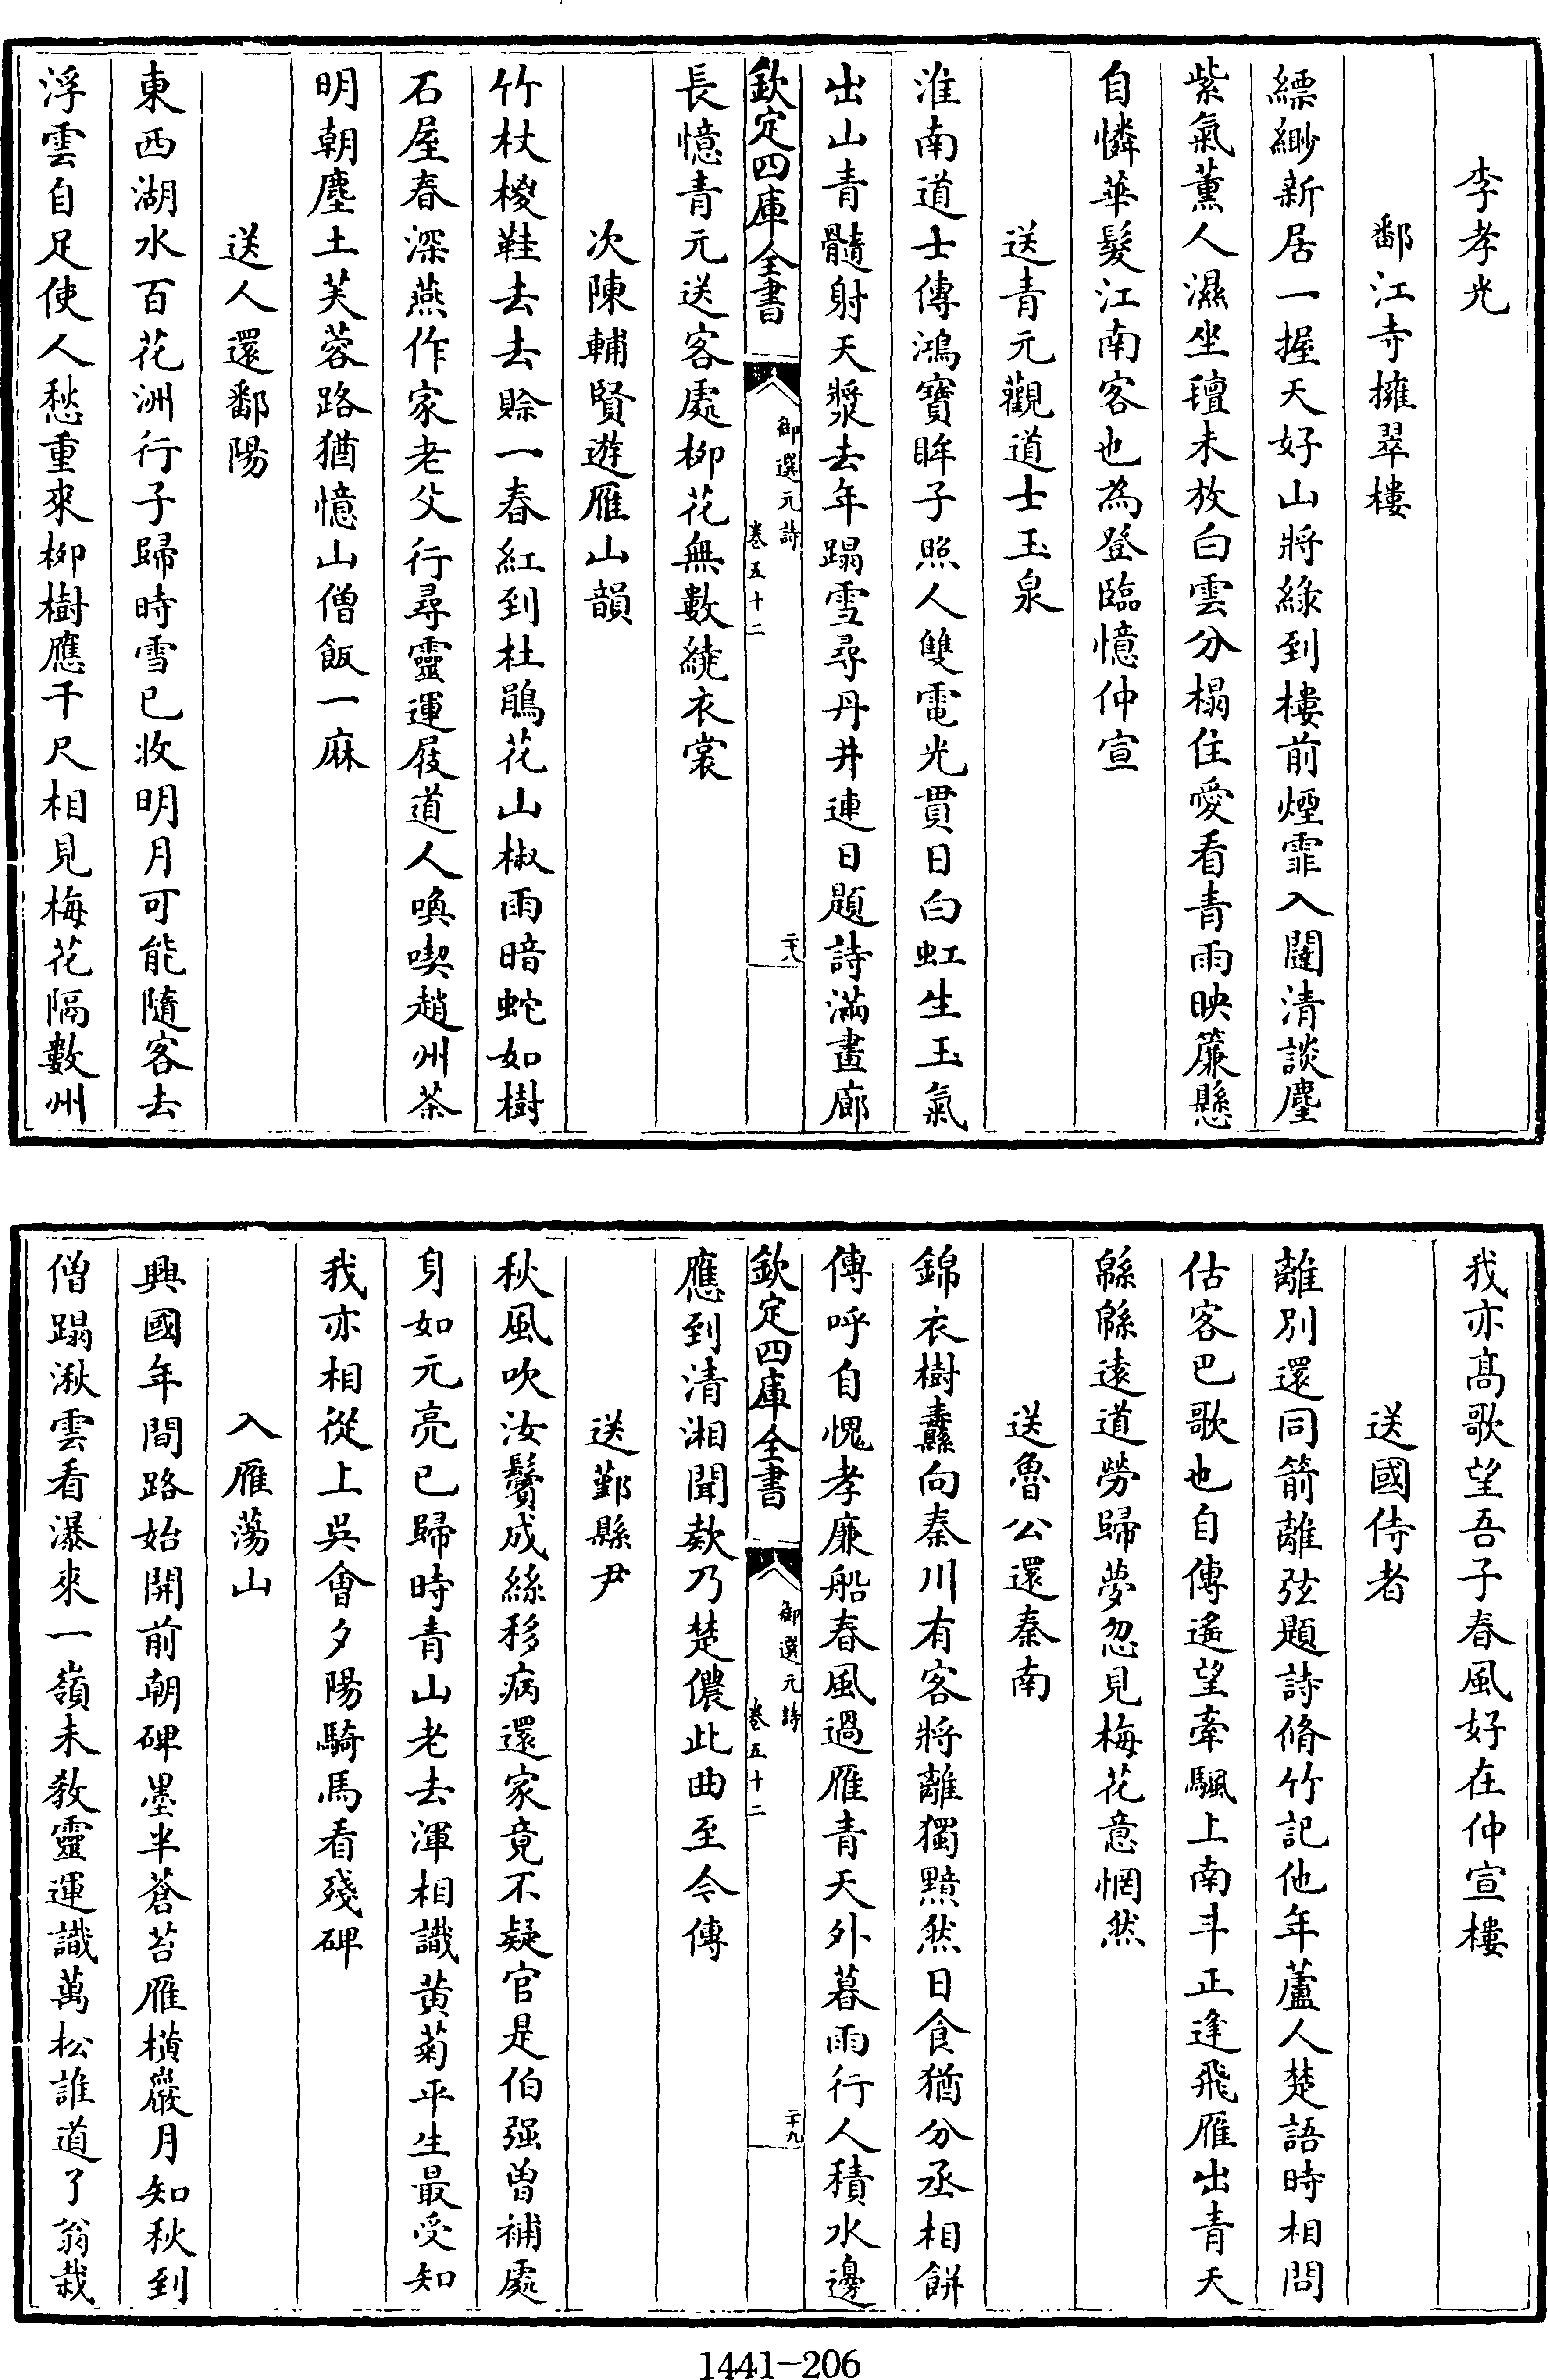 李孝光
鄱江寺擁翠樓
縹緲新居一握天好山將綠到樓前煙霏入闥清談麈
紫氣薰人濕坐氊未放白雲分榻住愛看青雨映簾懸
自憐華髮江南客也為登臨憶仲宣
送青元觀道士玉泉
淮南道士傳鴻寶眸子照人雙電光貫日白虹生玉氣
出山青髓射天漿去年蹋雪尋丹井連日題詩滿畫廊
欽定四庫全書
御選元詩
卷五十二
二十八
長憶青元送客處栁花無數繞衣裳
次陳輔賢遊雁山韻
竹杖椶鞋去去賒一春紅到杜鵑花山椒雨暗蛇如樹
石屋春深燕作家老父行尋靈運屐道人喚喫趙州茶
明朝塵土芙蓉路猶憶山僧飯一麻
送人還鄱陽
東西湖水百花洲行子歸時雪已收明月可能隨客去
浮雲自足使人愁重來栁樹應千尺相見梅花隔數州
我亦髙歌望吾子春風好在仲宣樓
送國侍者
離別還同箭離弦題詩脩竹記他年蘆人楚語時相問
估客巴歌也自傳遙望牽颿上南斗正逢飛雁出青天
緜緜遠道勞歸夢忽見梅花意惘然
送魯公還秦南
錦衣樹纛向秦川有客將離獨黯然日食猶分丞相餅
傳呼自愧孝廉船春風過雁青天外暮雨行人積水邊
欽定四庫全書
御選元詩
卷五十二
二十九
應到清湘聞欸乃楚儂此曲至今傳
送鄞縣尹
秋風吹汝鬢成絲移病還家竟不疑官是伯强曽補處
身如元亮已歸時青山老去渾相識黄菊平生最受知
我亦相從上吳會夕陽騎馬看殘碑
入雁蕩山
興國年間路始開前朝碑墨半蒼苔雁橫巖月知秋到
僧蹋湫雲看瀑來一嶺未教靈運識萬松誰道了翁栽
1441-206